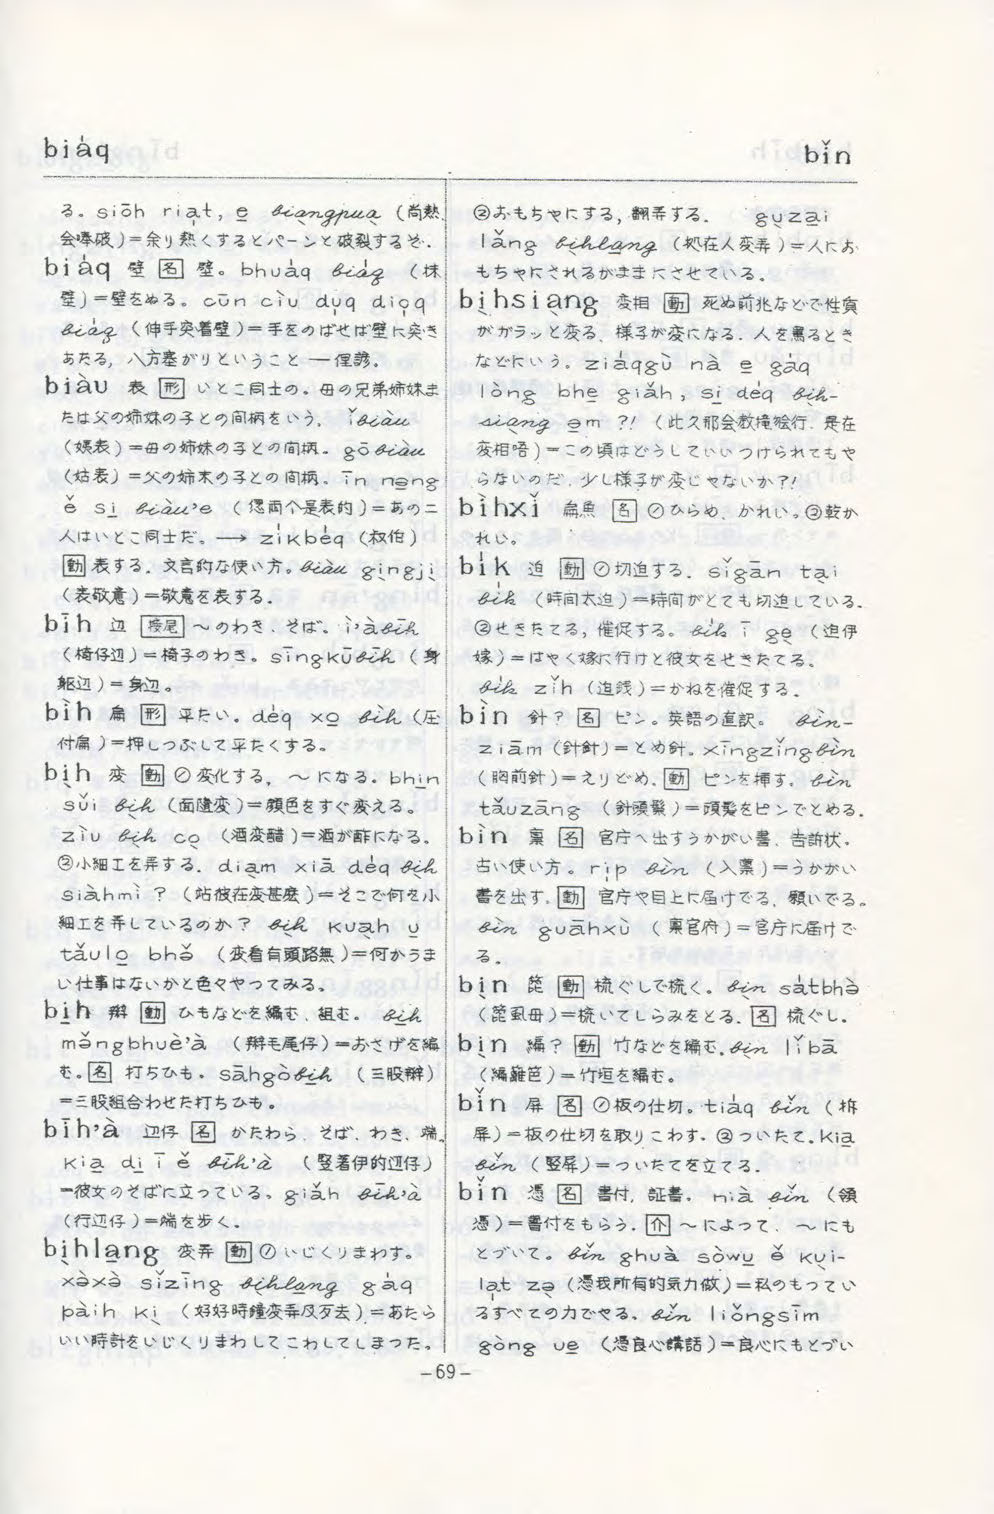 bia̍q
bǐn
る。siōh ria̍t, e̠ biangpua̠ (尚熱
会嗙破)=余り熱くするとパーンと破裂するぞ.
bia̍q 壁 [名] 壁。bhuàq bia̍q (抹
壁)=壁をぬる。cūn cìu du̍q dio̍q
bia̍q (伸手突着壁)=手をのばせば壁に突き
あたる, 八方塞がりということ — 俚諺.
biàu 表 [形] いとこ同士の。母の兄弟姉妹ま
たは父の姉妹の子との间柄をいう. ǐbiàu
(姨表)=母の姉妹の子との间柄。gōbiàu
(姑表)=父の姉末の子との间柄. īn ne̠ng
ě si̠ biàu'e (個両个是表的)=あの二
人はいとこ同士だ。→ zikbeq (叔伯)
[動] 表する. 文言的な使い方。biàu gìngji̖
(表敬意)=敬意を表する.
bīh 辺 [接尾] 〜のわき. そば。ì'àbīh
(椅仔辺)=椅子のわき。sīngkūbīh (身
躯辺)=身辺。
bìh 扁 [形] 平たい。de̍q xo̠ bìh (圧
付扁)=押しつぶして平たくする。
bi̖h 変 [動] ①変化する. 〜になる. bhi̠n
sǔi bi̖h (面隨変)=顔色をすぐ変える。
zìu bi̖h co̖ (酒変醋)=酒が酢になる.
②小細工を弄する. dia̠m xiā de̍q bi̖h
siàhmì? (站彼在変甚麽)=そこで何を小
細工を弄しているのか? bi̖h kua̖h u̠
tǎulo̠ bhǒ (変看有頭路無)=何かうま
い仕事はないかと色々やってみる.
bi̠h 辮 [動] ひもなどを編む. 組む. bi̠h
mǒngbhuè'à (辮毛尾仔)=おさげを編
む。[名] 打ちひも. sāhgòbi̠h (三股辮)
=三股組合わせた打ちひも.
bīh'à 辺仔 [名] かたわら. そば. わき. 端.
Kia̠ di̠ ī ě bīh'à (竪著伊的辺仔)
=彼女のそばに立っている。giǎh bīh'à
(行辺仔)=端を歩く.
bi̖hla̠ng 変弄 [動] ①いじくりまわす。
xòxò sǐzīng bi̖hla̠ng gàq
pàih ki̖ (好好時鐘変弄及歹去)=あたら
いい時計をいじくりまわしてこわしてしまった.
②おもちゃにする, 翻弄する. gu̖za̠i
lǎng bi̖hla̠ng (拠在人変弄)=人にお
もちゃにされるがままにさせている.
bi̖hsia̖ng 変相 [動] 死ぬ前兆などで性質
がガラッと変る. 様子が変になる. 人を罵るとき
などにいう。ziàqgù nà e̠ gàq
lòng bhe̠ giǎh, si̠ de̍q bi̖h-
sia̖ng e̠m ?! (此久那会教攏𣍐行. 是在
変相唔)=この頃はどうしていいつけられてもや
らないのだ. 少し様子が変じゃないか?!
bìhxǐ 扁魚 [名] ①ひらめ. かれい。②乾か
れい.
bi̍k 迫 [動] ①切迫する. sǐgān ta̖i
bi̍k (時间太迫)=時间がとても切迫している.
②せきたてる, 催促する。bi̍k ī ge̖ (迫伊
嫁)=はやく嫁に行けと彼女をせきたてる。
bi̍k zǐh (迫銭)=かねを催促する.
bìn 針? [名] ピン。英語の直訳。bìn-
ziām (針針)=とめ針. xīngzǐngbìn
(胸前針)=えりどめ. [動] ピンを挿す. bìn
tǎuzāng (針頭鬃)=頭髪をピンでとめる.
bìn 稟 [名] 官庁へ出すうかがい書. 告訴状.
古い使い方。ri̍p bìn (入稟)=うかがい
書を出す. [動] 官庁や目上に届けでる. 願いでる。
bìn guāhxù (稟官府)=官庁に届けで
る.
bi̖n 箆 [動] 梳ぐしで梳く。bi̖n sàtbhò
(箆虱母)=梳いてしらみをとる. [名] 梳ぐし.
bi̖n 編? [動] 竹などを編む. bi̖n lǐbā
(編籬笆)=竹垣を編む.
bǐn 屏 [名] ①板の仕切. tiàq bǐn (拆
屏)=板の仕切を取りこわす. ②ついたて. Kia̠
bǐn (竪屏)=ついたてを立てる.
bǐn 憑 [名] 書付, 証書. nià bǐn (領
憑)=書付をもらう. [介] 〜によって. 〜にも
とづいて。bǐn ghuà sòwu̠ ě ku̖i-
la̍t zə̖ (憑我所有的気力做)=私のもってい
るすべての力でやる. bǐn liǒngsīm
gòng ue̠ (憑良心講話)=良心にもとづい
-69-